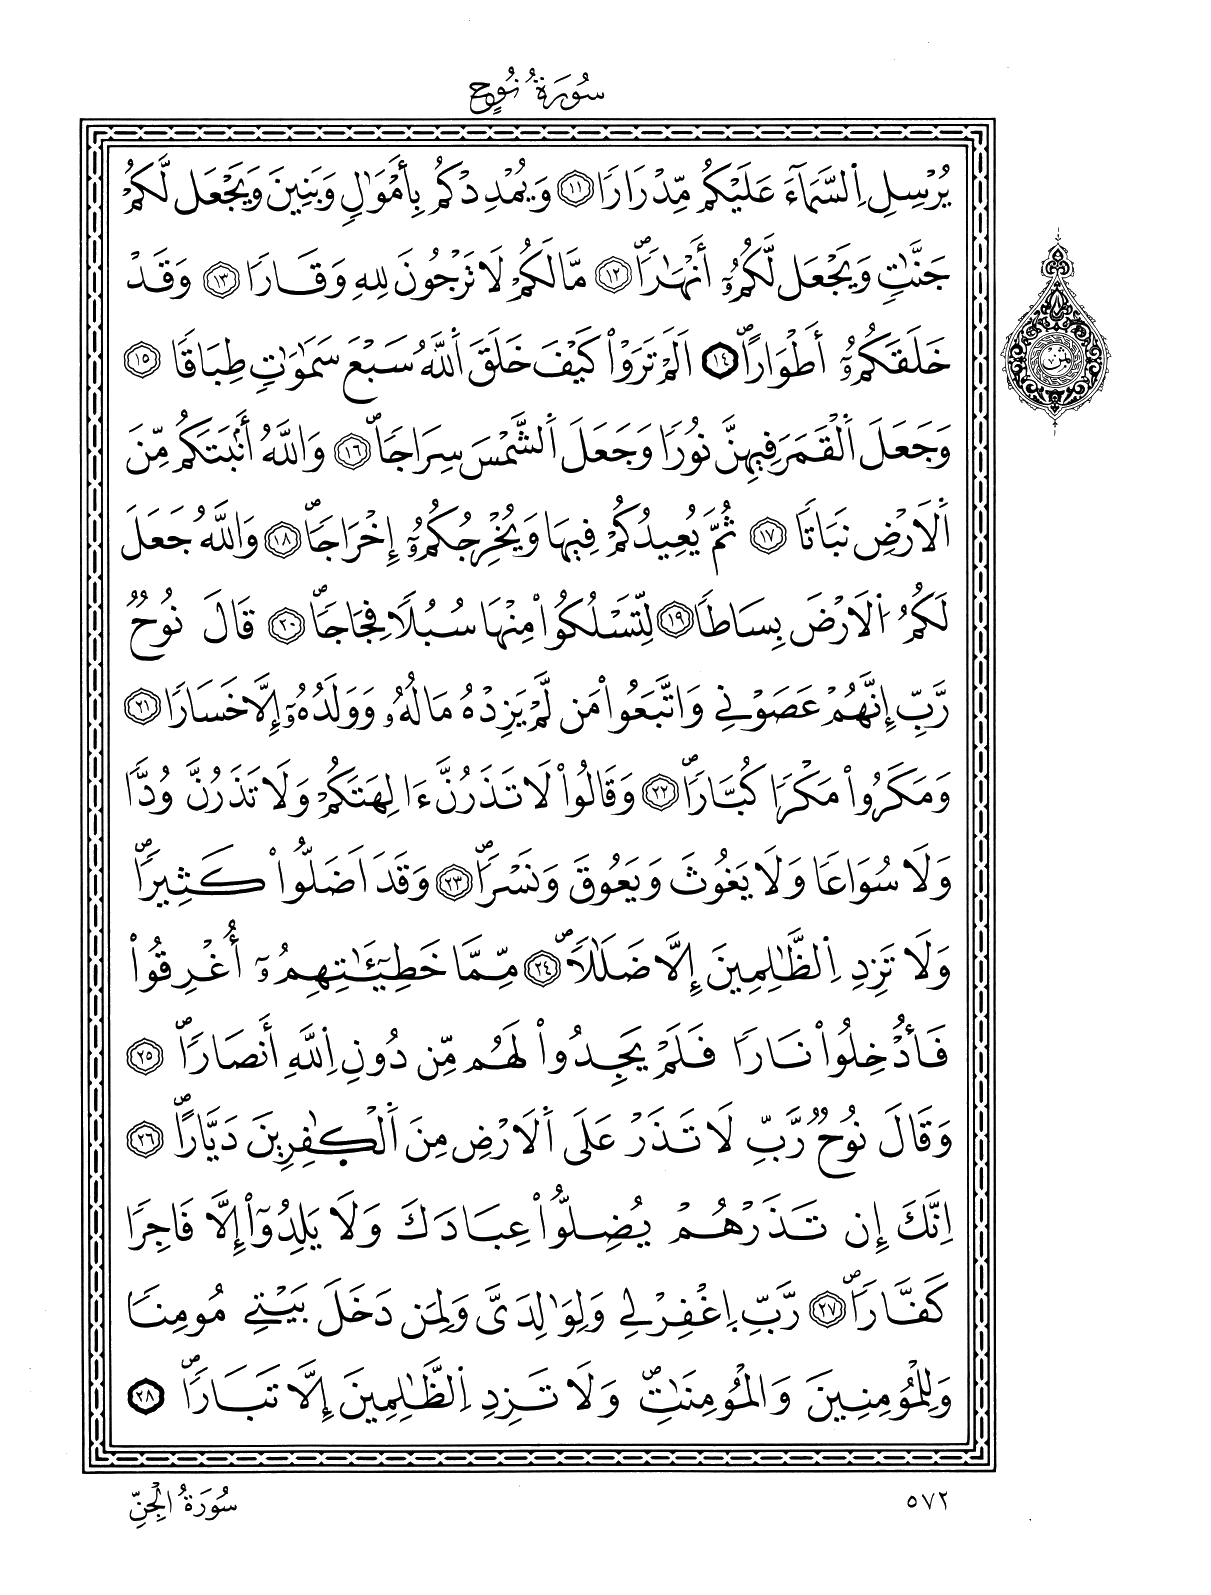 سُورَةُ نُوحٍ
يُرْسِلِ اِ۬لسَّمَآءَ عَلَيْكُم مِّدْرَاراٗ ١١ وَيُمْدِدْكُم بِأَمْوَٰلٖ وَبَنِينَ وَيَجْعَل لَّكُمْ
جَنَّٰتٖ وَيَجْعَل لَّكُمُۥٓ أَنْهَٰراٗۖ ١٢ مَّا لَكُمْ لَا تَرْجُونَ لِلهِ وَقَاراٗ ١٣ وَقَدْ
خَلَقَكُمُۥٓ أَطْوَاراًۖ ١٤ اَلَمْ تَرَوْاْ كَيْفَ خَلَقَ اَ۬للَّهُ سَبْعَ سَمَٰوَٰتٖ طِبَاقاٗ ١٥
وَجَعَلَ اَ۬لْقَمَرَ فِيهِنَّ نُوراٗ وَجَعَلَ اَ۬لشَّمْسَ سِرَاجاٗۖ ١٦ وَاللَّهُ أَنۢبَتَكُم مِّنَ
اَ۬لَارْضِ نَبَاتاٗ ١٧ ثُمَّ يُعِيدُكُمْ فِيهَا وَيُخْرِجُكُمُۥٓ إِخْرَاجاٗۖ ١٨ وَاللَّهُ جَعَلَ
لَكُمُ اُ۬لَارْضَ بِسَاطاٗ ١٩ لِّتَسْلُكُواْ مِنْهَا سُبُلاٗ فِجَاجاٗۖ ٢٠ قَالَ نُوحٞ
رَّبِّ إِنَّهُمْ عَصَوْنِے وَاتَّبَعُواْ مَن لَّمْ يَزِدْهُ مَالُهُۥ وَوَلَدُهُۥٓ إِلَّا خَسَاراٗ ٢١
وَمَكَرُواْ مَكْراٗ كُبَّاراٗۖ ٢٢ وَقَالُواْ لَا تَذَرُنَّ ءَالِهَتَكُمْ وَلَا تَذَرُنَّ وُدّاٗ
وَلَا سُوَاعاٗ وَلَا يَغُوثَ وَيَعُوقَ وَنَسْراٗۖ ٢٣ وَقَدَ اَضَلُّواْ كَثِيراٗۖ
وَلَا تَزِدِ اِ۬لظَّٰلِمِينَ إِلَّا ضَلَٰلاٗۖ ٢٤ مِّمَّا خَطِيٓـَٰٔتِهِمُۥٓ أُغْرِقُواْ
فَأُدْخِلُواْ نَاراٗ فَلَمْ يَجِدُواْ لَهُم مِّن دُونِ اِ۬للَّهِ أَنصَاراٗۖ ٢٥
وَقَالَ نُوحٞ رَّبِّ لَا تَذَرْ عَلَى اَ۬لَارْضِ مِنَ اَ۬لْكٰ۪فِرِينَ دَيَّاراًۖ ٢٦
اِنَّكَ إِن تَذَرْهُمْ يُضِلُّواْ عِبَادَكَ وَلَا يَلِدُوٓاْ إِلَّا فَاجِراٗ
كَفَّاراٗۖ ٢٧ رَّبِّ اِ۪غْفِرْ لِے وَلِوَٰلِدَيَّ وَلِمَن دَخَلَ بَيْتِے مُومِناٗ
وَلِلْمُؤْمِنِينَ وَالْمُؤْمِنَٰتِۖ وَلَا تَزِدِ اِ۬لظَّٰلِمِينَ إِلَّا تَبَاراٗۖ ٢٨
٥٧٢
سُورَةُ الْجِنِّ